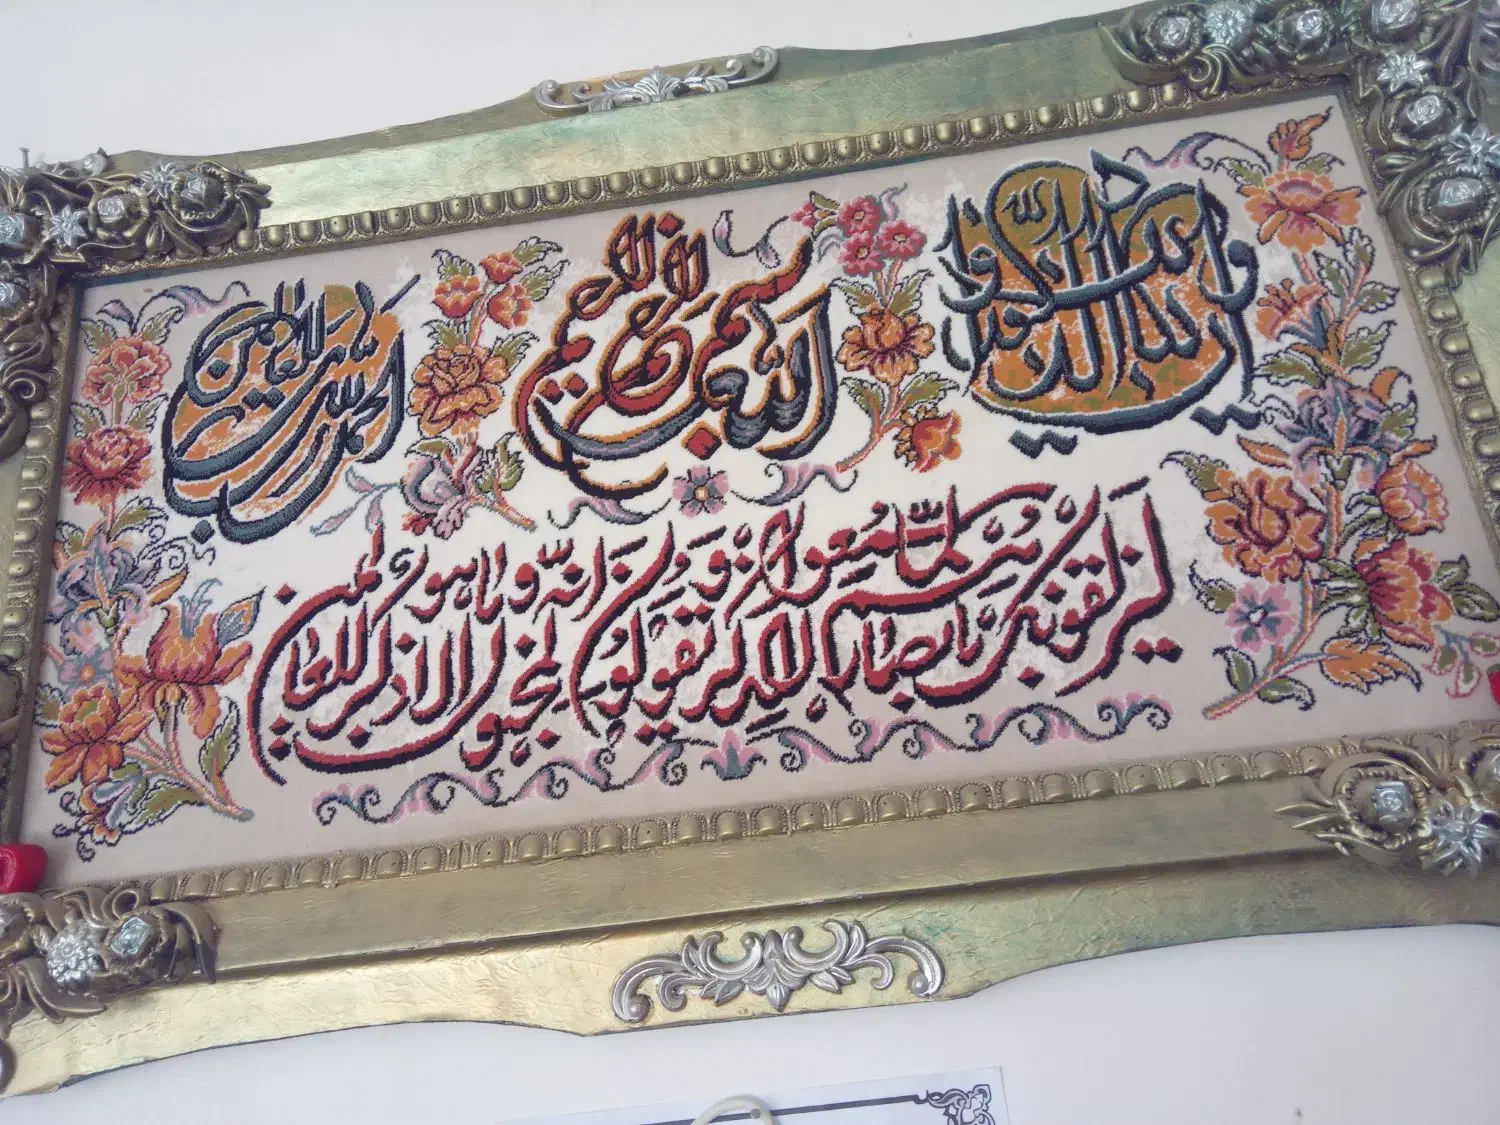 وان یکاد الذین کفروا
بسم الله الرحمن الرحیم
الحمدلله رب العالمین
لیزلقونک بابصارهم لما سمعوا الذکر و یقولون انه لمجنون و ما هو الا ذکر للعالمین